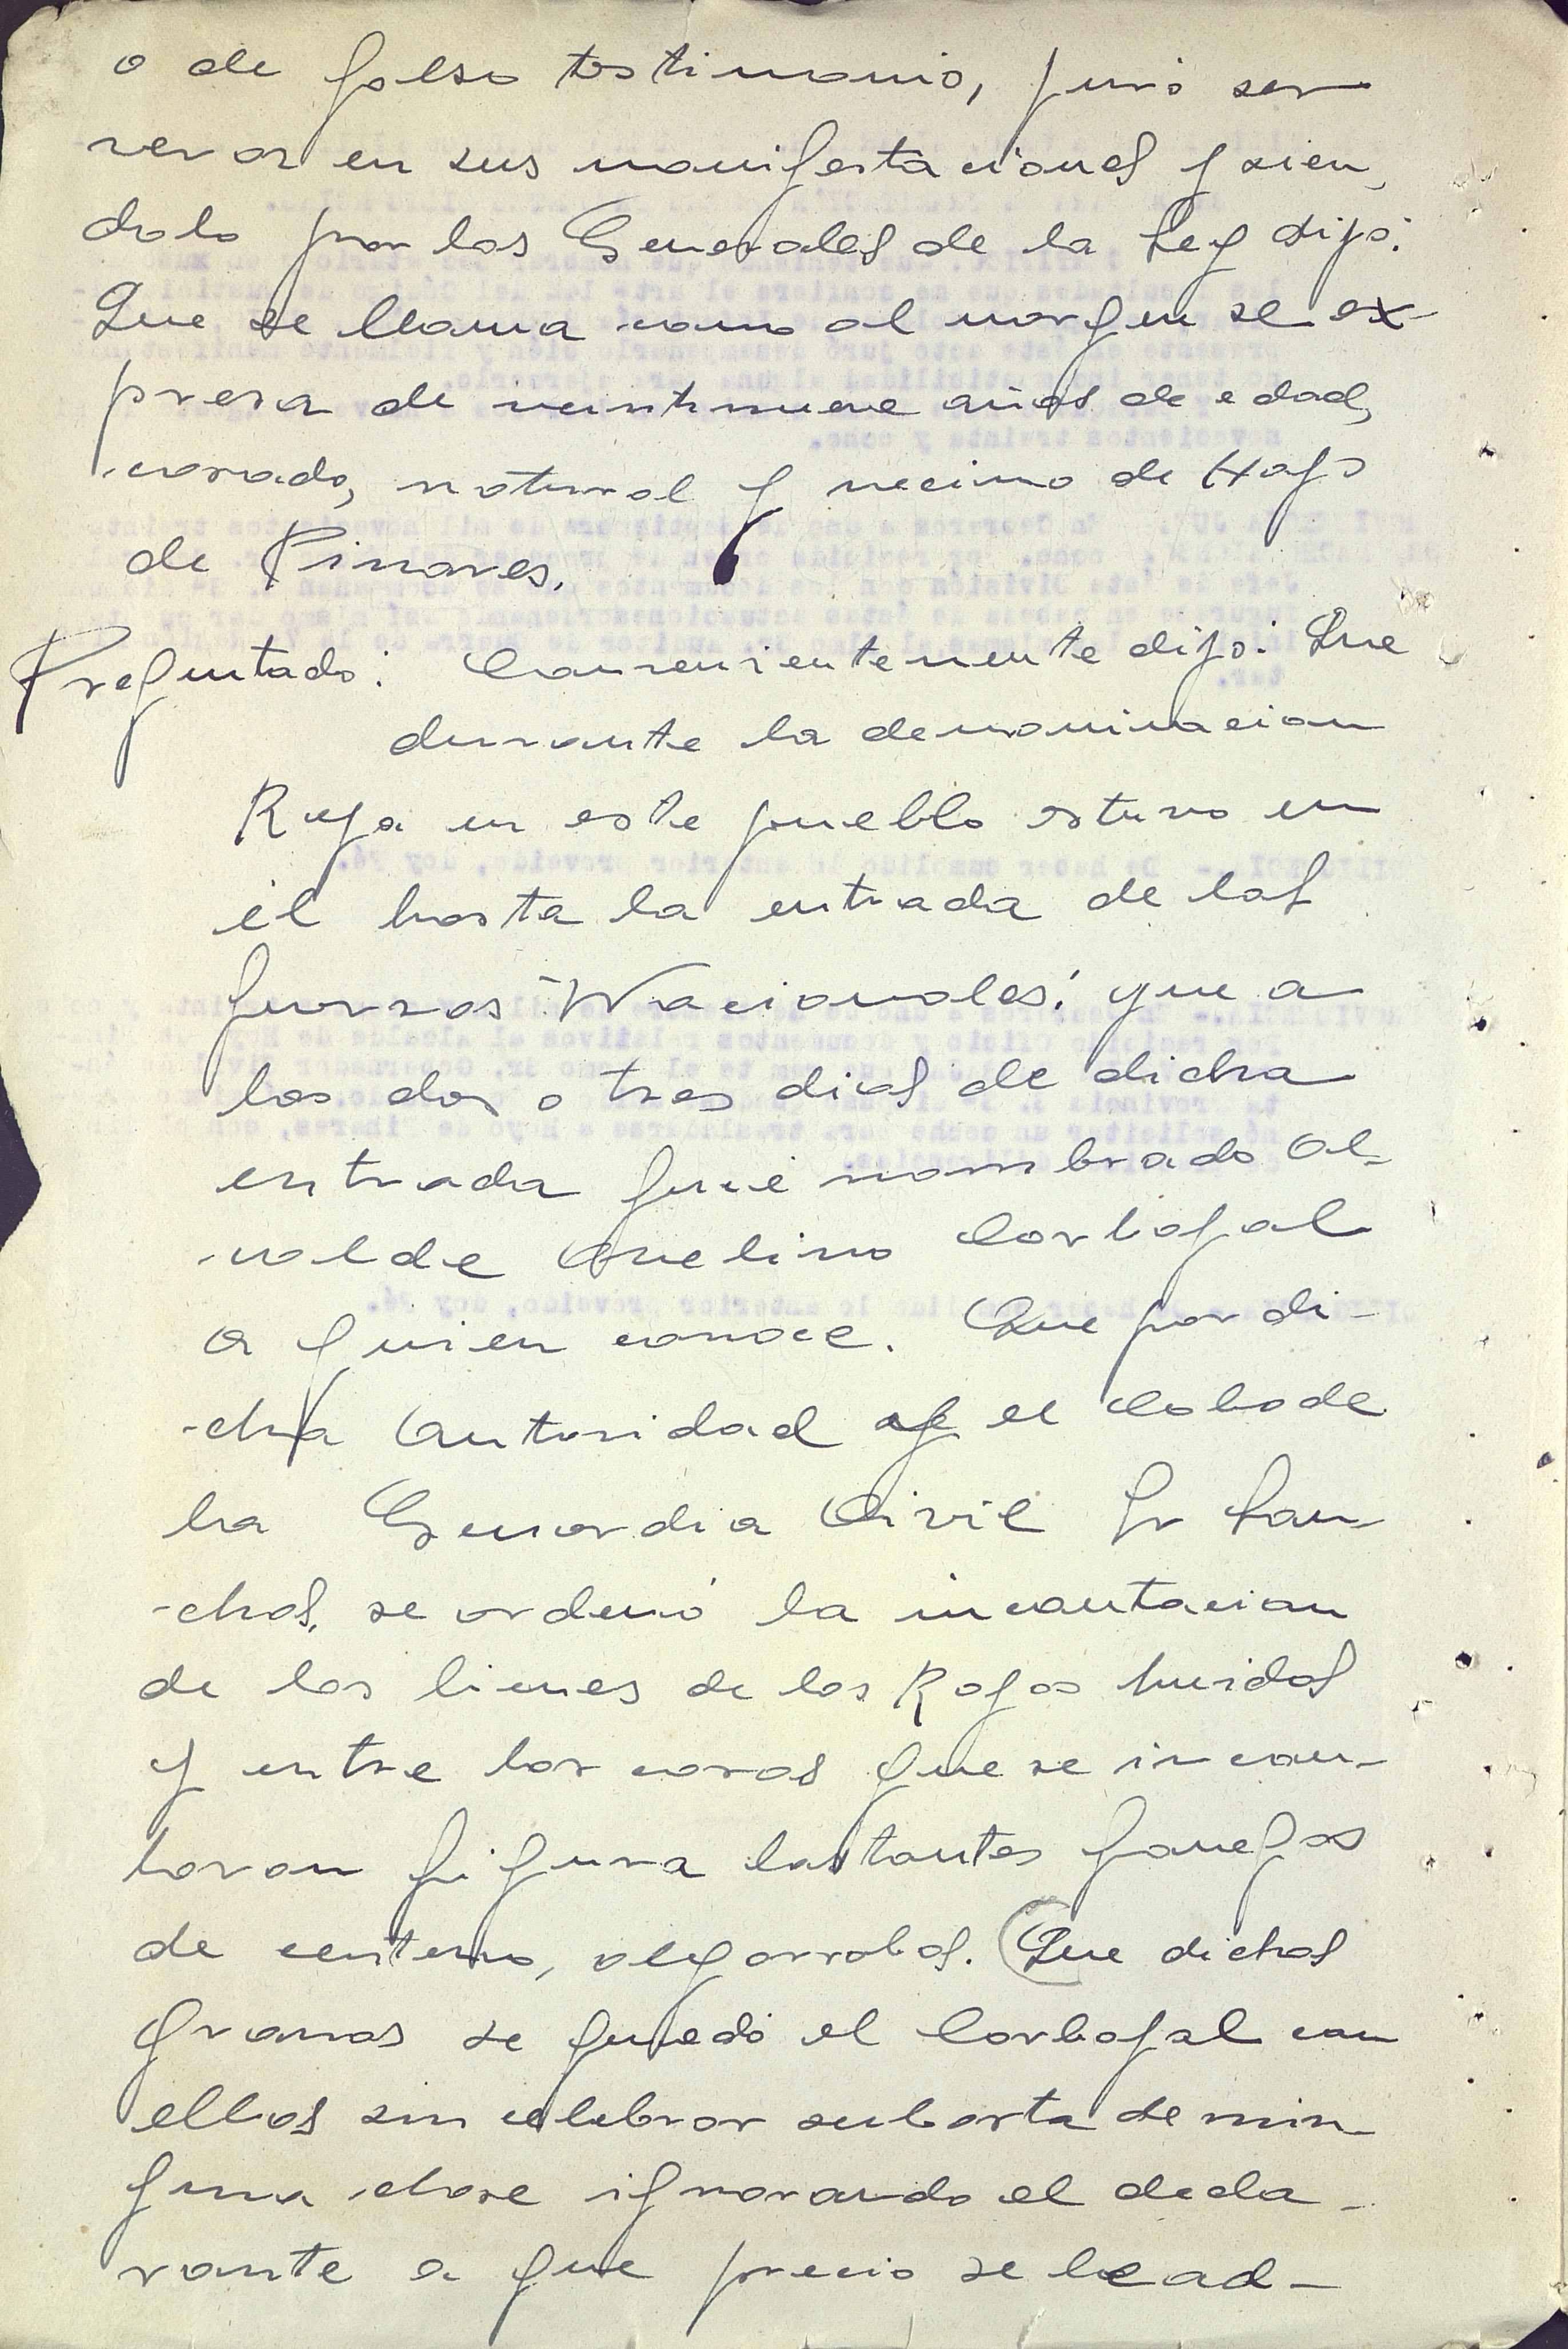 o de falso testimonio, juró ser
veraz en sus manifestaciones y sien,
dolo por las Generales de la Ley dijo:
Que se llama como al margen se ex-
presa de veintinueve años de edad,
casado, natural y vecino de Hoyo
de Pinares.
Preguntado: Convenientemente dijo: Que
durante la denominacion
Roja en este pueblo estuvo en
él hasta la entrada de las
fuerzas Nacionales; que a
los dos o tres dias de dicha
entrada fué nombrado Al-
calde Avelino Carbajal
a quien conoce. Que por di-
-cha Autoridad y el Cabo de
la Guardia Civil Sr San-
-chos, se ordenó la incautacion
de los bienes de los Rojos huidos
y entre las cosas que se incau-
taron figura bastantes fanegas
de centeno, algarrobas. Que dichos
granos se quedó el Carbajal con
ellos sin celebrar subasta de nin-
guna clase ignorando el decla-
rante a que precio se le ad-